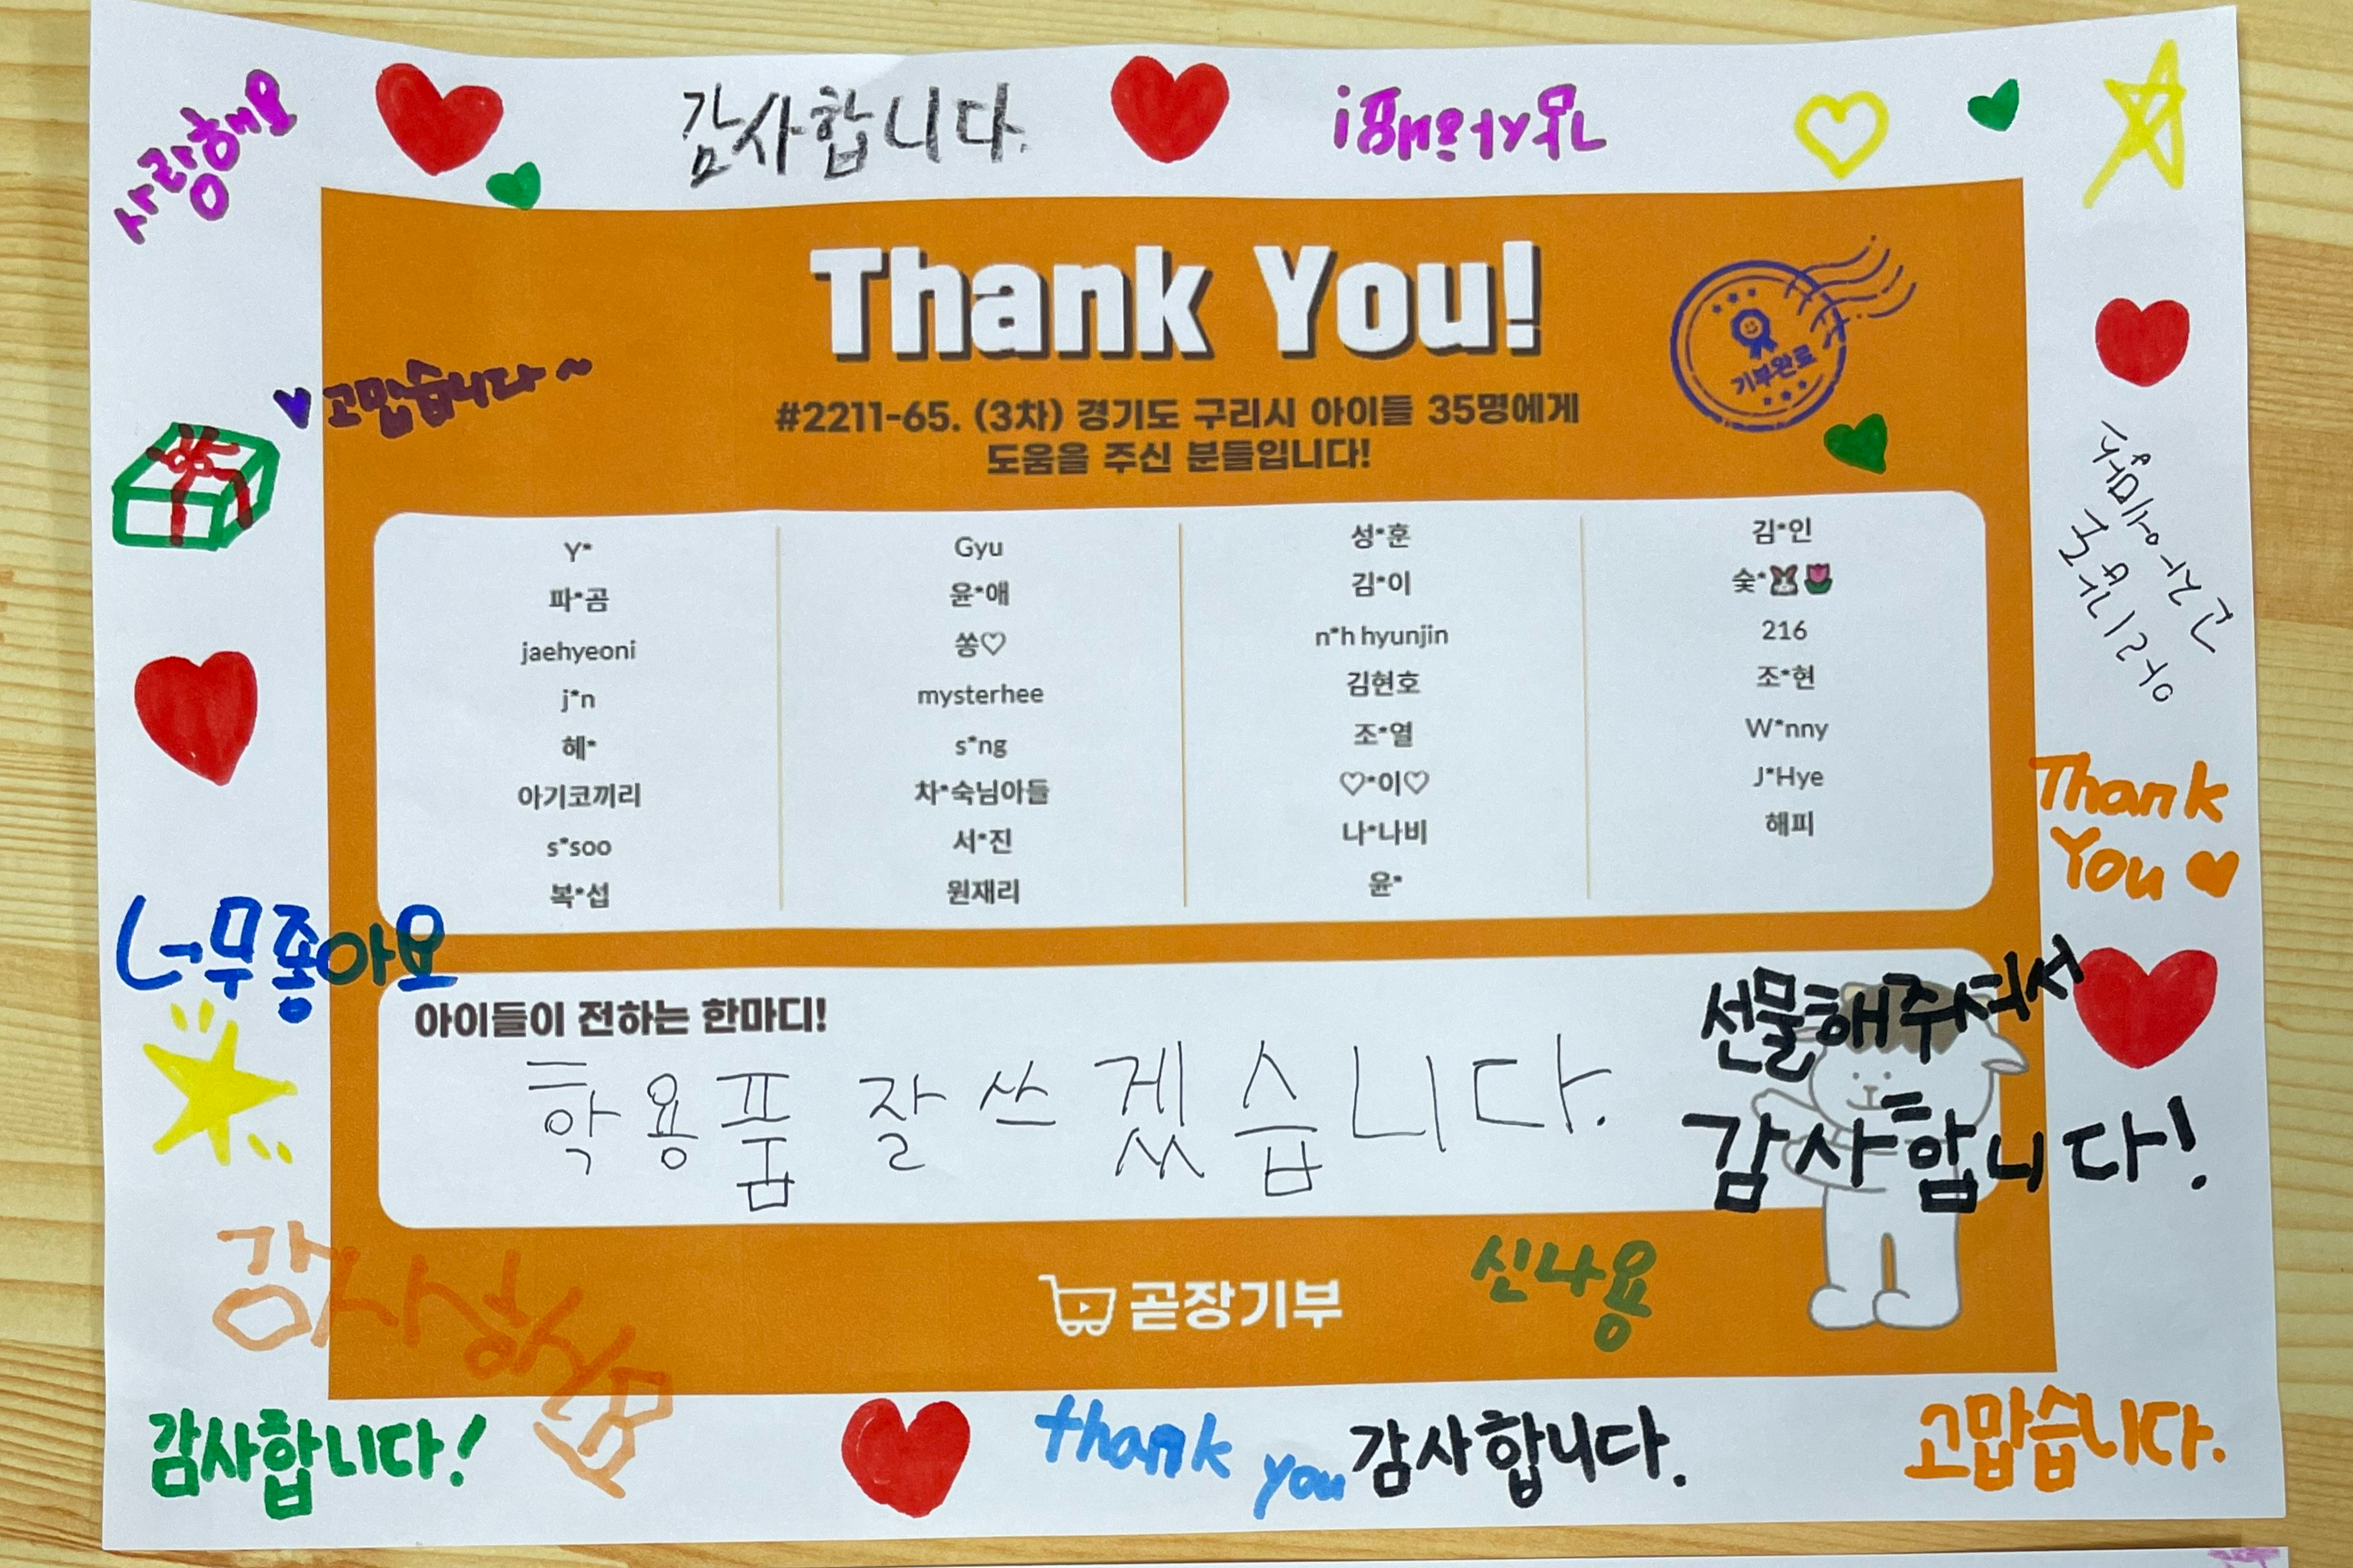 사랑해요
감사합니다.
Thank You!
기부완료
#2211-65. (3차) 경기도 구리시 아이들 35명에게
도움을 주신 분들입니다!
고맙습니다~
Y*
파*곰
jaehyeoni
j*n
혜*
아기코끼리
s*soo
복*섭
Gyu
윤*애
쏭♡
mysterhee
s*ng
차*숙님아들
서*진
원재리
성*훈
김*이
n*h hyunjin
김현호
조*열
♡*이♡
나*나비
윤*
김*인
숯*🐰🌷
216
조*현
W*nny
J*Hye
해피
Thank
You
너무좋아요
아이들이 전하는 한마디!
학용품 잘 쓰겠습니다.
선물해주셔서
감사합니다!
곧장기부
신나용
감사합니다!
thank you
감사합니다.
고맙습니다.